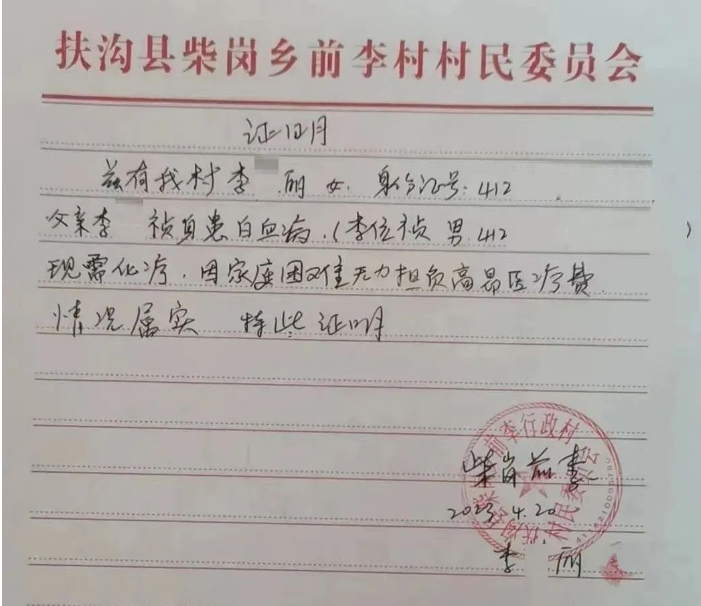 扶沟县柴岗乡前李村村民委员会
证明
兹有我村李 丽 女. 身份证号: 412
父亲李 祯身患白血病.(李位祯 男. 412 )
现需化疗. 因家庭困难无力担负高昂医疗费.
情况属实 特此证明
前李行政村
柴岗前李
2023.4.20
村民委员会
李 丽